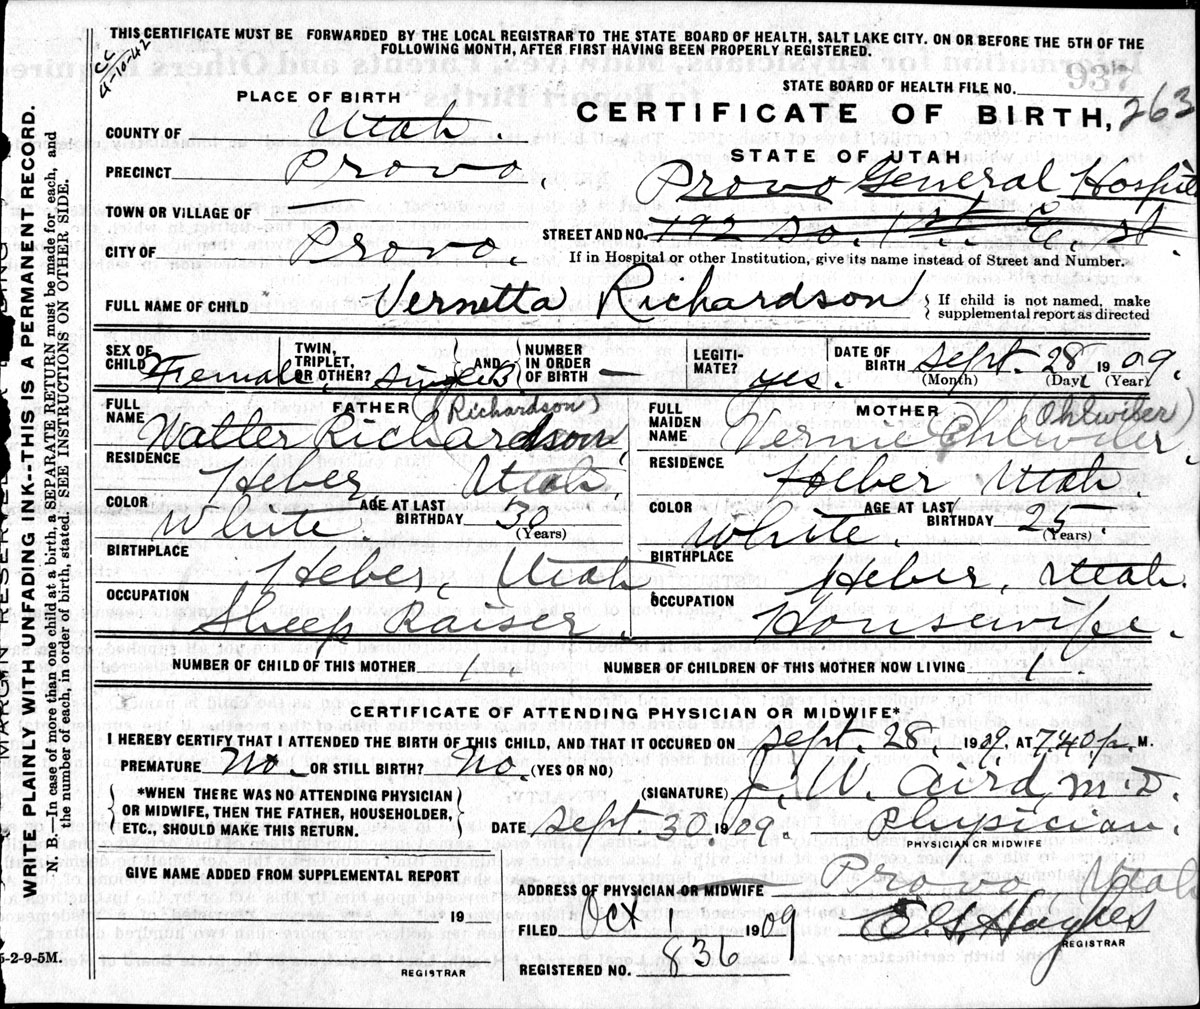 THIS CERTIFICATE MUST BE FORWARDED BY THE LOCAL REGISTRAR TO THE STATE BOARD OF HEALTH, SALT LAKE CITY, ON OR BEFORE THE 5TH OF THE
FOLLOWING MONTH, AFTER FIRST HAVING BEEN PROPERLY REGISTERED.
CC
9-10-42
STATE BOARD OF HEALTH FILE NO.
937
PLACE OF BIRTH
CERTIFICATE OF BIRTH, 263
COUNTY OF Utah.
STATE OF UTAH
PRECINCT Provo.
Provo General Hospital
TOWN OR VILLAGE OF
STREET AND NO. 192 So. 1st. E. st.
CITY OF Provo.
If in Hospital or other Institution, give its name instead of Street and Number.
FULL NAME OF CHILD Vernetta Richardson
{ If child is not named, make
supplemental report as directed
SEX OF CHILD Female. TWIN, TRIPLET, OR OTHER? single } AND { NUMBER IN ORDER OF BIRTH — LEGITIMATE? yes. DATE OF BIRTH Sept. 28 1909.
(Month) (Day) (Year)
FULL NAME FATHER (Richardson)
Walter Richardson
FULL MAIDEN NAME MOTHER (Ohlwiler)
Vernie Ohlwiler
RESIDENCE Heber Utah.
RESIDENCE Heber Utah.
COLOR White. AGE AT LAST BIRTHDAY 30 (Years)
COLOR White. AGE AT LAST BIRTHDAY 25 (Years)
BIRTHPLACE Heber, Utah
BIRTHPLACE Heber, Utah.
OCCUPATION Sheep Raiser.
OCCUPATION Housewife.
NUMBER OF CHILD OF THIS MOTHER 1. NUMBER OF CHILDREN OF THIS MOTHER NOW LIVING 1.
CERTIFICATE OF ATTENDING PHYSICIAN OR MIDWIFE*
I HEREBY CERTIFY THAT I ATTENDED THE BIRTH OF THIS CHILD, AND THAT IT OCCURED ON Sept. 28. 1909. AT 7.40 p. M.
PREMATURE No. OR STILL BIRTH? No. (YES OR NO)
{ *WHEN THERE WAS NO ATTENDING PHYSICIAN
OR MIDWIFE, THEN THE FATHER, HOUSEHOLDER,
ETC., SHOULD MAKE THIS RETURN. }
(SIGNATURE) J. W. Aird, M. D.
DATE Sept. 30. 1909. Physician.
PHYSICIAN OR MIDWIFE
GIVE NAME ADDED FROM SUPPLEMENTAL REPORT
ADDRESS OF PHYSICIAN OR MIDWIFE Provo, Utah
19
FILED Oct 1909 E. G. Hughes
REGISTRAR
REGISTRAR
REGISTERED NO. 836
5-2-9-5M.
WRITE PLAINLY WITH UNFADING INK--THIS IS A PERMANENT RECORD.
N. B.—In case of more than one child at a birth, a SEPARATE RETURN must be made for each, and
the number of each, in order of birth, stated. SEE INSTRUCTIONS ON OTHER SIDE.